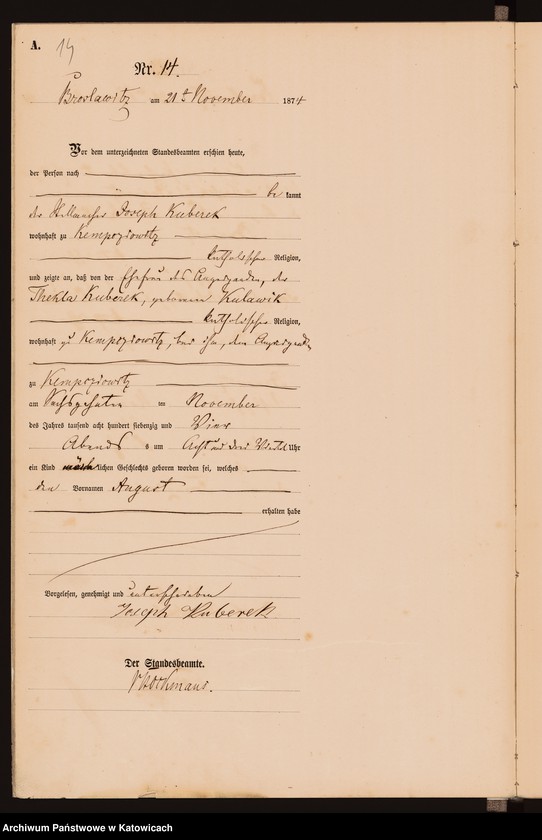 A. 14
Nr. 14.
Broslawitz am 21t November 1874
Vor dem unterzeichneten Standesbeamten erschien heute,
der Person nach
be kannt
der Stellmacher Joseph Kuberek
wohnhaft zu Kempczowitz
katholischer Religion,
und zeigte an, daß von der Ehefrau des Anzeigenden, der
Thekla Kuberek, geborenen Kulawik
katholischer Religion,
wohnhaft zu Kempczowitz, bei ihm, dem Anzeigenden
zu Kempczowitz
am Sechszehnten ten November
des Jahres tausend acht hundert siebenzig und Vier
Abends s um Acht und drei Viertel Uhr
ein Kind männlichen Geschlechts geboren worden sei, welches
den Vornamen August
erhalten habe
Vorgelesen, genehmigt und unterschrieben
Joseph Kuberek
Der Standesbeamte.
Archiwum Państwowe w Katowicach